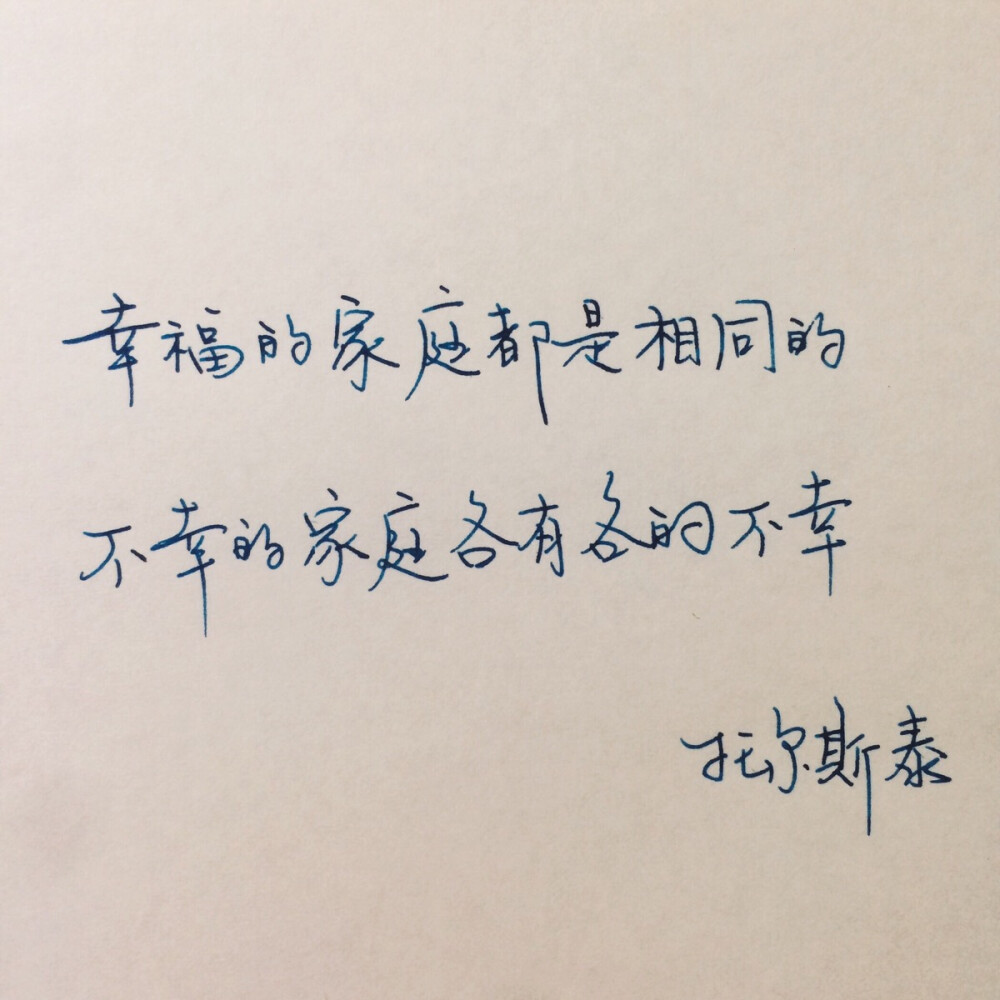 幸福的家庭都是相同的
不幸的家庭各有各的不幸
托尔斯泰